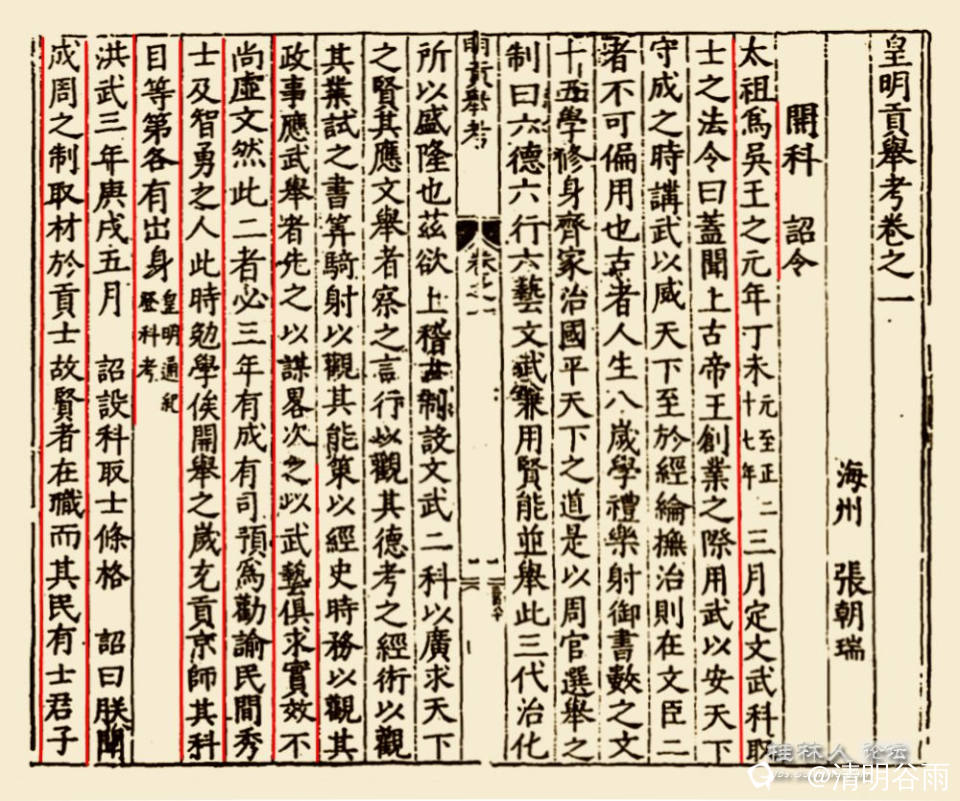 皇明貢舉考卷之一
海州 張朝瑞
開科 詔令
太祖爲吳王之元年丁未元至正二十七年三月定文武科取
士之法令曰蓋聞上古帝王創業之際用武以安天下
守成之時講武以威天下至於經綸撫治則在文臣二
者不可偏用也古者人生八歲學禮樂射御書數之文
十五學修身齊家治國平天下之道是以周官選舉之
制曰六德六行六藝文武兼用賢能並舉此三代治化
明貢舉考 卷之一
所以盛隆也茲欲上稽古制設文武二科以廣求天下
之賢其應文舉者察之言行以觀其德考之經術以觀
其業試之書筭騎射以觀其能策以經史時務以觀其
政事應武舉者先之以謀畧次之以武藝俱求實效不
尚虛文然此二者必三年有成有司預爲勸諭民間秀
士及智勇之人此時勉學俟開舉之歲充貢京師其科
目等第各有出身皇明通紀登科考
洪武三年庚戌五月 詔設科取士條格 詔曰朕聞
成周之制取材於貢士故賢者在職而其民有士君子
桂林人 论坛
@清明谷雨